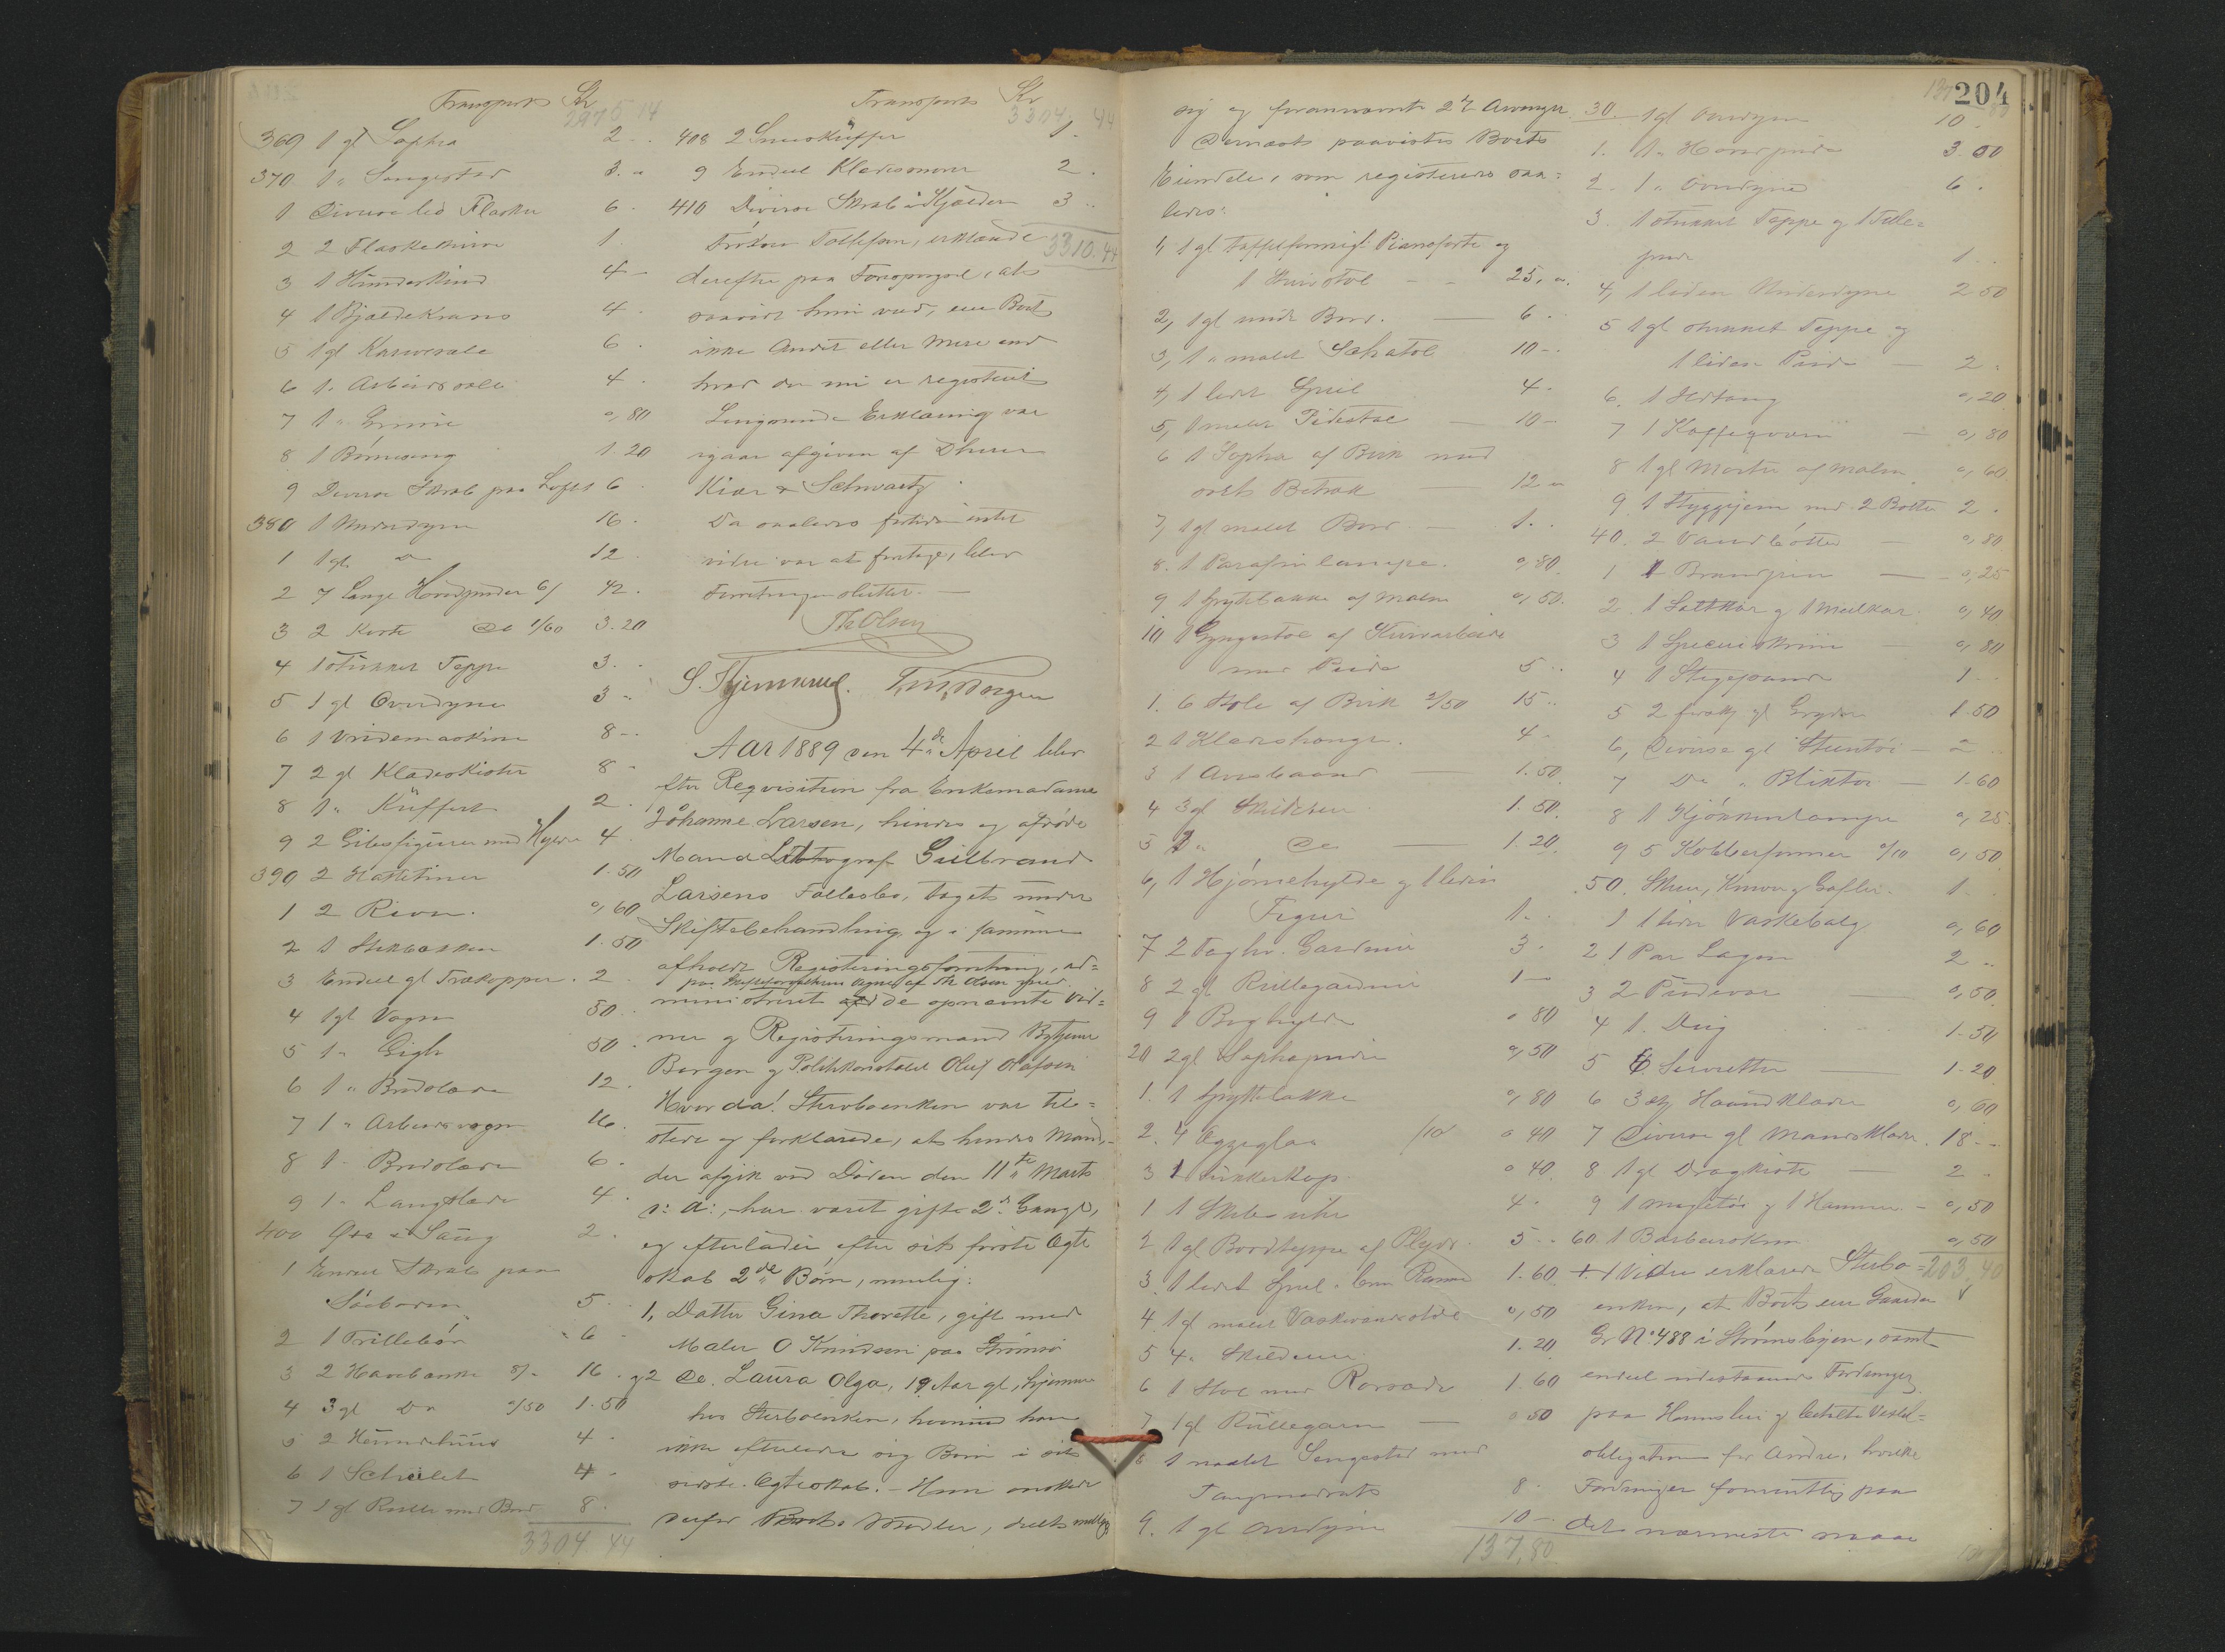 Transport Kr
2975 14
369 1 gl Sopha 2 -
370 1 " Sengested 3. "
1 Diverse led Flasker 6 -
2 2 Flaskekurve 1.
3 1 Hundeskind 4 -
4 1 Bjældekrans 4.
5 1 gl Karivolsæle 6.
6 1. Arbeidssæle 4.
7 1 " Grime 0,80
8 1 Børneseng 1.20
9 Diverse Skrab paa Loftet 6.
380 1 Underdyne 16.
1 1 gl Do 12
2 7 lange Hovedpuder 6/ 42.
3 2 korte Do 1/60 3.20
4 1 stukket Teppe 3. -
5 1 gl Overdyne 3 -
6 1 Vridemaskine 8 -
7 2 gl Klædeskister 8 -
8 1 " Kuffert 2.
9 2 Gibsfigurer med Hylder 4
390 2 Hatteтiner 1.50
1 2 River. 0,60
2 1 1.50
3 Endeel gl Trækopper. 2.
4 1 gl Vogn 50.
5 1 " Gigh 50.
6 1 " Bredslæde 12.
7 1 " Arbeidsvogn 16.
8 1 - Bredslæde 6.
9 1 - Langslæde 4.
400 Øxe & Saug 2.
1 Endeel Skrab paa
Søeboden 5
2 1 Trillebør 6
3 2 Havebænke 8/- 16.
4 3 gl Do 0/50 1.50
5 2 Hundehuus 4 -
6 1 Schislet 4 -
7 1 gl Rulle med Bord 8.
3304 44
Transport Kr
3304 44
408 2 Sneeskuffer 1.
9 Endeel Klædesnorer 2.
410 Diverse Skrab i Kjælder 3 ..
3310.44
Frøken Tollefsen, erklærede
derefter paa Forespørgsel, at
saavidt hun veed, eier Boet
ikke Andet eller Mere end
hvad der nu er registreret
Lignende Erklæring var
igaar afgiven af Dhrr
Kiær & Schwartz.
Da saaledes fortiden intet
videre var at foretage, blev
Forretningen sluttet. —
Th Olsen
S. Hjemmerud. Borgen
Aar 1889 den 4de April blev
efter Reqvisition fra Enkemadame
Johanne Larsen, hendes og afdøde
Mand Lithograf Gulbrand
Larsens Fællesbo, taget under
Skiftebehandling og i samme
afholdt Registreringsforretning, ad-
paa Skifteforvalterens Vegne af Th Olsen med
ministreret af de opnævnte Vid-
ner og Registreringsmænd Bytjener
Borgen og Politikonstabel Oluf Olafsen
Hvor da! Sterboenken var til-
stede og forklarede, at hendes Mand,
der afgik ved Døden den 11te Marts
d: A:, har været gift 2de Gange,
og efterlader efter sit første Ægte
skab 2de Børn, nemlig:
1, Datter Gina Thorette, gift med
Maler O Knudsen paa Strømsø
og 2 do. Laura Olga, 19 Aar gl, hjemme
hos Sterboenken, hvorimod han
ikke efterlader sig Børn i sit
sidste Ægteskab. - Hun ønsker
derfor Boets Midler, deelt mellem
204
sig og forannævnte 2de Arvinger.
Dernæst paavistes Boets
Eiendele, som registreredes saa-
ledes:
1, 1 gl taffelformigt Pianoforte og
1 Skruestol - - 25, ".
2, 1 gl rundt Bord. — 6 -
3, 1 " malet Schatol 10 -.
4, 1 lidet Speil 4 -
5, 1 malet Pidestal — 10 -
6 1 Sopha af Birk med
sort Betræk — 12 "
7, 1 gl malet Bord. — 1..
8. 1 Parafinlampe. 0,80
9 1 Spyttebakke af Malm 0,50.
10 1 Gyngestol af Kurvarbeide
med Pude 5 ..
1. 6 Stole af Birk 2/50 15 ..
2 1 Klædeshænger. 4 -
3 1 — 1.50
4 3 gl Skilderier 1.50.
5 2 " Do — 1.20
6, 1 Hjørnehylde og 1 liden
Figur 1..
7 2 Fag hv. Gardiner 3.
8 2 gl Rullegardiner 1 —
9 1 Boghylde " 80
20 2 gl Sophapuder 0,50
1. 1 Spyttebakke 0,80
2. 4 Æggeglas /10 0 40
3 1 Sukkerkop 0 40.
1 1 4 -
2 1 gl Bordteppe af Plyds. 5 -
3. 1 lidet Speil i brun Ramme 1.60
4. 1 gl malet Vaskevandsstol 0,50
5 4 " Skilderier. 1.20
6 1 Stol med Rorsæde 1.60
7 1 gl Rullegardin — 0 50
8 1 malet Sengested med
Tangmadrats 8 -
9. 1 gl Overdyne 10 -
137,80
137 80
30. 1 gl Overdyne 10 -
1. 1 " Hovedpude 3.00
2. 1 " Overdyne 6 -
3 1 stukket Teppe og 1 Fille-
pude 1..
4, 1 liden Underdyne 2 50
5 1 gl stukket Teppe og
1 liden Pude — 2.
6. 1 Ildtang 0,20
7 1 Kaffeqværn — 0,80
8 1 gl Morter af Malm 0,60
9. 1 Byggjern med 2 Bolte 2.
40. 2 Vandbøtter — 0,80
1 1 Brændjern — 0,25
2. 1 Saltkar og 1 Meelkar. 0,40
3 1 Speciiskrin — 0,80
4 1 Stegepande 1 -
5 2 forskj gl Gryder 1.50
6, Diverse gl Steentøi - 2 ..
7 Do " Bliktøi — 1.60
8 1 Kjøkkenlampe 0,25.
9 5 Kobberformer 0/10 0,50
50. Skeer, Knive og Gafler. 1.
1 1 liden Vaskebalg 0,60
2 1 Par Lagen 2 ..
3 2 Pudevar — 0,50
4 1. Dug 1.50
5 6 Servietter — 1.20
6 3 stk Haandklæder 0,60
7 Diverse gl Mandsklæder. 18 -
8 1 gl Dragkiste — 2 ..
9 1 Øxe og 1 Hammer - 0,50
60. 1 Barberskrin 0,50
203.40
+. Videre erklærede Sterbo-
enken, at Boet eier Gaarden
Gr No 488 i Strømsbyen, samt
endeel udestaaende Fordringer
paa Huusleie og betalte Vexel-
obligationer for Andre, hvilke
Fordringer formentlig paa
det nærmeste maa